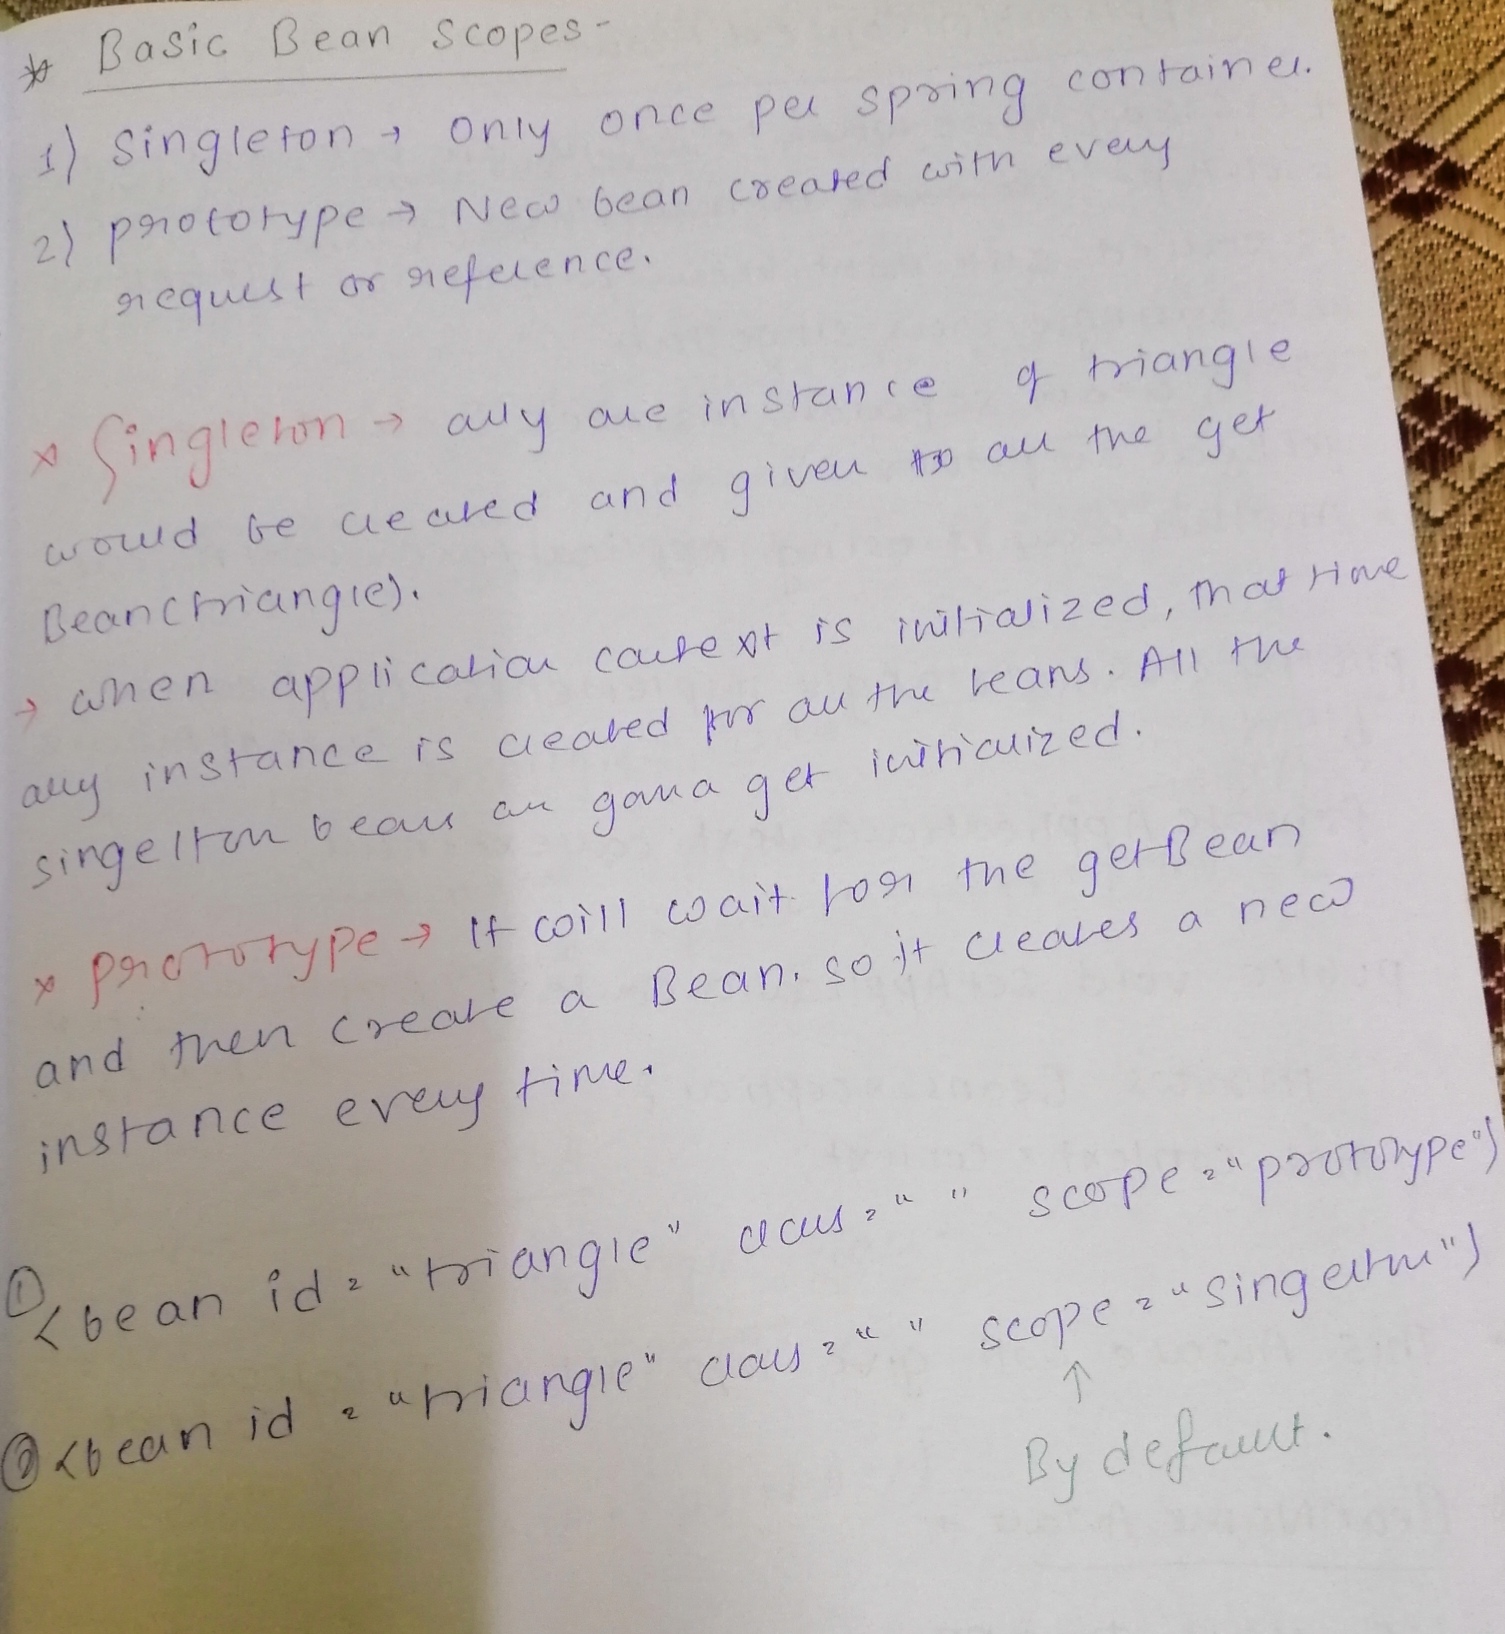 * Basic Bean Scopes -
1) Singleton → only once per spring container.
2) prototype → New bean created with every
request or reference.
* Singleton → only one instance of triangle
would be created and given to all the get
Bean(triangle).
→ when application context is initialized, that time
only instance is created for all the beans. All the
singelton beans are gonna get initialized.
* prototype → It will wait for the getBean
and then create a Bean. so it creates a new
instance every time.
① <bean id = "triangle" class = " " scope = "prototype")
② <bean id = "triangle" class = " " scope = "singelton")
↑
By default.